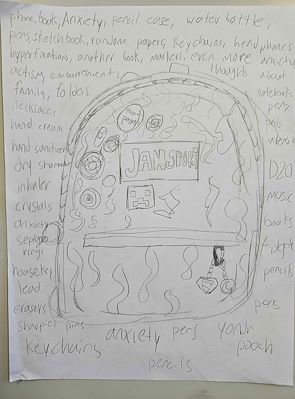 phone, book, Anxiety, pencil case, water bottle,
pens, sketchbook, random papers, Keychains, headphones
hyperfixations, another book, markers, even more anxieties
thoughts about
family, folders
notebooks
necklaces
pens
hand cream
hand sanitizer
dry shampoo
D20
inhaler
music
crystals
books
anxiety
fidgets
rings
pencils
house key
lead
pens
erasers
sharpies pins
JANSPORT
Keychains anxiety pens yondr
pouch
pencils